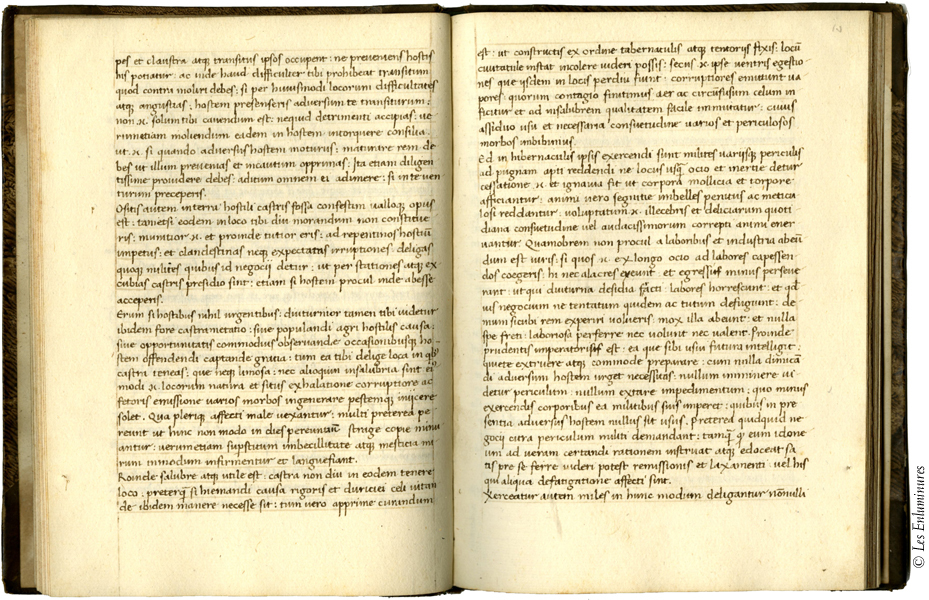 pes et claustra atq; transitus ipsos occupent: ne preveniens hostis
his potiatur: ac inde haud difficulter tibi prohibeat transitum
quod contra moliri debes: si per huiusmodi locorum difficultates
atq; angustias: hostem presenseris adversum te transiturum:
non solum tibi cavendum est: nequid detrimenti accipias: ve
rum etiam moliendum eadem in hostem intorquere consilia.
ut si quando adversus hostem moturus: maturare rem de
bes ut illum prevenias et incautum opprimas: Ita etiam diligen
tissime providere debes: aditum omnem ei adimere: si inte ven
turum preceperis.
Ositis autem in terra hostili castris fossa confestim valloq; opus
est: tametsi eodem in loco tibi diu morandum non constitue
ris: munitior et proinde tutior eris: ad repentinos hostium
impetus: et clandestinas necq; expectatas irruptiones: deligas
quoq; milites quibus id negocii detur: ut per stationes atq; ex
cubias castris presidio sint: etiam si hostem procul inde abesse
acceperis.
Erum si hostibus nihil urgentibus: diuturnior tamen tibi videtur
ibidem fore castrametatio: sive populandi agri hostilis causa:
sive opportunitatis commodius observande occasionibusq; ho
stem offendendi captande gratia: tum ea tibi delige loca in qb
castra teneas: que neq; limosa: nec alioquin insalubria sint ei
modi locorum natura et situs exhalatione corruptiore ac
fetoris emissione varios morbos ingenerare pestemq; iniicere
solet. Qua pleriq; affecti male vexantur: multi preterea pe
reunt ut hunc non modo in dies pereuntium strage copie minu
antur: verum etiam supstitum imbecillitate atq; mesticia mi
rum inmodum infirmentur et languefiant.
Roinde salubre atq; utile est: castra non diu in eodem tenere
loco: preterq; si hiemandi causa rigoris et duriciei celi vitan
de ibidem manere necesse sit: tum vero apprime curandum
est: ut constructis ex ordine tabernaculis atq; tentoriis fixis: locum
civitatule instat incolere videri possis: secus ipse ventris egestio
nes que iisdem in locis perdiu fiunt: corruptiores emittunt va
pores: quorum contagio finitimus aer ac circumfusum celum in
ficitur et ad insalubrem qualitatem facile immutatur: cuius
assiduo usu et necessaria consuetudine varios et periculosos
morbos imbibimus.
Ed in hibernaculis ipsis exercendi sunt milites variisq; periculis
ad pugnam apti reddendi ne locus usq; ocio et inertie detur
cessatione et ignavia sit ut corpora mollicia et torpore
afficiantur: animi vero segnitie imbelles penitus ac meticu
losi reddantur: voluptatum illecebris et deliciarum quoti
diana consuetudine vel audacissimorum correpti animi ener
vantur. Quamobrem non procul a laboribus et industria abeun
dum est viris: si quos ex longo ocio ad labores capessen
dos coegeris: hi nec alacres exeunt: et egressi minus perseve
rant: ut qui diuturna desidia facti labores horrescunt: et qd
vis negocium ne tentatum quidem ac tutum defugiunt: de
mum sicubi rem experiri volueris: mox illa abeunt: et nulla
spe freti: laboriosa perferre nec volunt nec valent. Proinde
prudentis imperatoris est: ea que sibi usui futura intelligit:
quiete extruere atq; commode preparare: cum nulla dimican
di adversum hostem urget necessitas: nullum imminere vi
detur periculum: nullum extare impedimentum: quo minus
exercendis corporibus ea militibus suis imperet: quibus in pre
sentia adversus hostem nullus sit usus. Preterea quidquid ne
gocii citra periculum multi demandant: tamq; eum idone
um ad veram certandi rationem instruat atq; edoceat sa
tis pre se ferre videri potest remissionis et laxamenti: vel his
qui aliqua defatigatione affecti sint.
Xerceatur autem miles in hunc modum deligantur nonnulli
© Les Enluminures